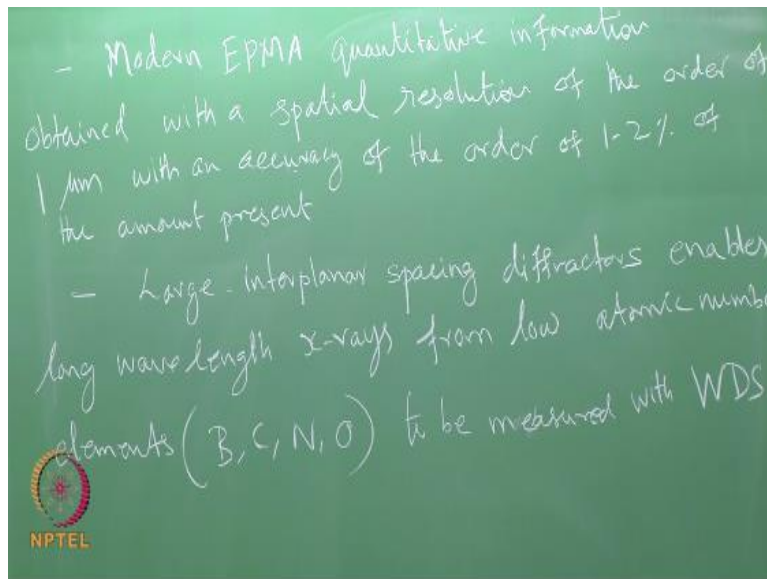 - Modern EPMA quantitative information
obtained with a spatial resolution of the order of
1 μm with an accuracy of the order of 1-2% of
the amount present
- Large-interplanar spacing diffractors enables
long wavelength x-rays from low atomic numbe
elements (B, C, N, O) to be measured with WDS
NPTEL